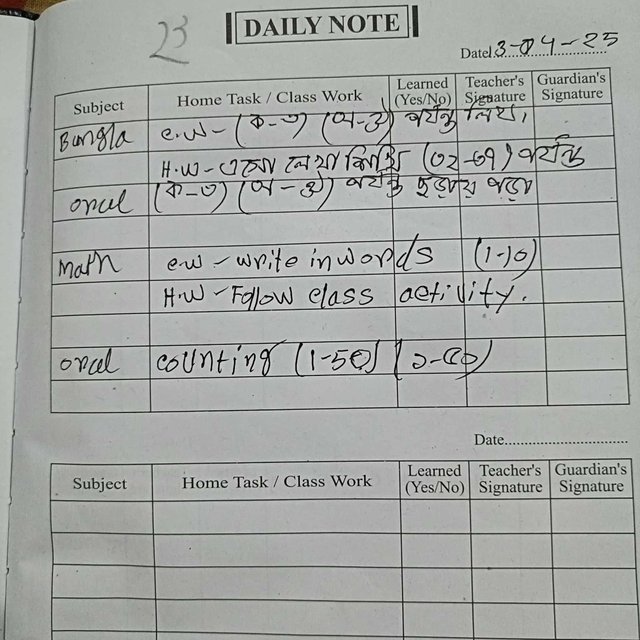 23
DAILY NOTE
Date 3-04-25
Subject Home Task / Class Work Learned (Yes/No) Teacher's Signature Guardian's Signature
Bangla C.W- (ক-ঙ) (অ-ঔ) পর্যন্ত লিখ।
H.W- এসো লেখা শিখি (৩২-৩৭) পর্যন্ত
oral (ক-ঙ) (অ-ঔ) পর্যন্ত ছড়ায় পড়া
Math C.W - write in words (1-10)
H.W - Follow class activity.
oral counting (1-50) (১-৫০)
Date..............................
Subject Home Task / Class Work Learned (Yes/No) Teacher's Signature Guardian's Signature